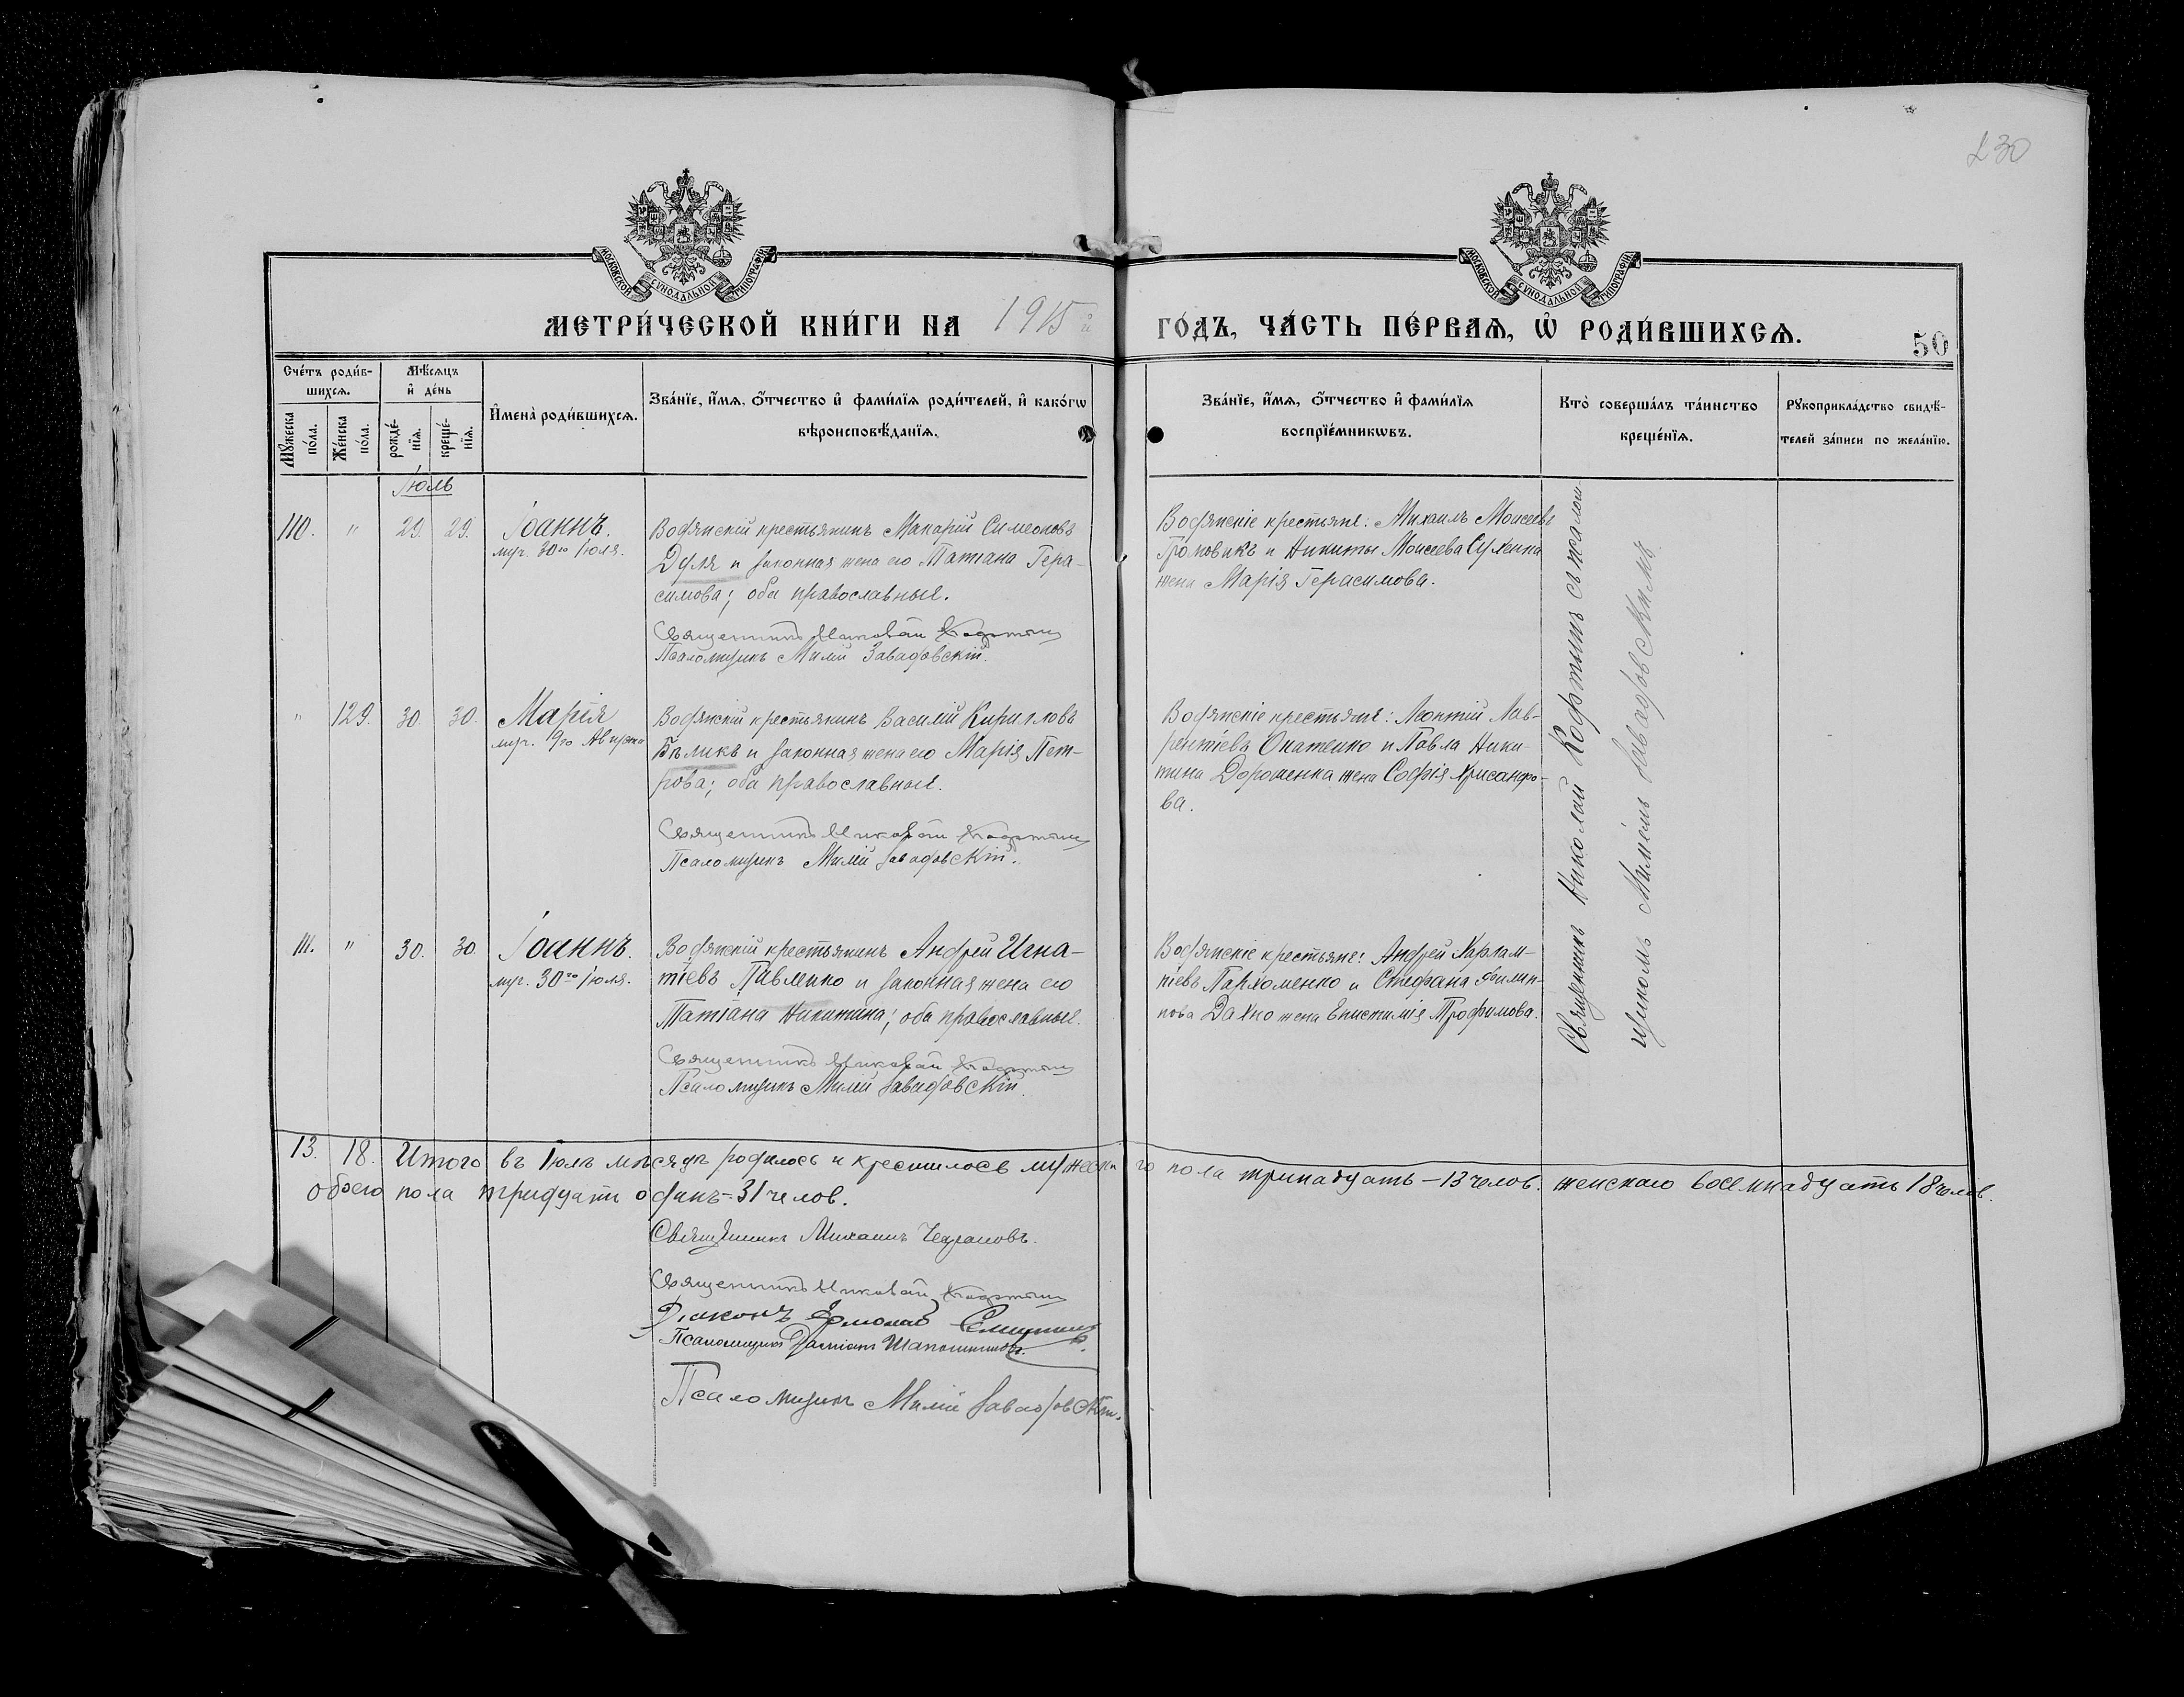 230
МОСКОВСКОЙ СУНОДАЛЬНОЙ ТИПОГРАФІИ
МОСКОВСКОЙ СУНОДАЛЬНОЙ ТИПОГРАФІИ
МЕТРИ́ЧЕСКОЙ КНИ́ГИ НА 1915й ГО́ДЪ, ЧА́СТЬ ПЕ́РВАѦ, Ѡ҆ РОДИ́ВШИХСѦ.
50
Сче́тъ роди́в-
шихсѧ.
Мꙋ́жеска по́ла.
Же́нска по́ла.
Мѣ́сѧцъ
и҆ де́нь
рожде́-
нїѧ.
креще́-
нїѧ.
И҆мена̀ роди́вшихсѧ.
Зва́нїе, и҆́мѧ, ѻ҆́тчество и҆ фами́лїѧ роди́телей, и҆ како́гѡ
вѣроисповѣ́данїѧ.
Зва́нїе, и҆́мѧ, ѻ҆́тчество и҆ фами́лїѧ
воспрїе́мникѡвъ.
Кто̀ соверша́лъ та́инство
креще́нїѧ.
Рꙋкоприкла́дство свидѣ́-
телей за́писи по жела́нїю.
Іюль
110. " 29. 29. Іоаннъ.
муч. 30го Іюля.
Водянскій крестьянинъ Макарій Симеоновъ
Дуля и законная жена его Татіана Гера-
симова; оба православные.
Священникъ Николай Кофтинъ
Псаломщикъ Милій Завадовскій.
Водянскіе крестьяне: Михаилъ Моисеевъ
Громовикъ и Никиты Моисеева Сухенка
жена Марія Герасимова.
" 129. 30. 30. Марія
муч. 9го Августа
Водянскій крестьянинъ Василій Кирилловъ
Бѣликъ и законная жена его Марія Пет-
рова; оба православные.
Священникъ Николай Кофтинъ
Псаломщикъ Милій Завадовскій.
Водянскіе крестьяне: Леонтій Лав-
рентіевъ Опатенко и Павла Ники-
тина Дорошенка жена Софія Хрисанфо-
ва.
111. " 30. 30. Іоаннъ.
муч. 30го Іюля.
Водянскій крестьянинъ Андрей Игна-
тіевъ Павленко и законная жена его
Татіана Никитина; оба православные.
Священникъ Николай Кофтинъ
Псаломщикъ Милій Завадовскій.
Водянскіе крестьяне: Андрей Харлам-
піевъ Пархоменко и Стефана Филип-
пова Дахно жена Епистимія Трофимова.
Священникъ Николай Кофтинъ съ псалом-
щикомъ Миліемъ Завадовскимъ
13. 18. Итого въ Іюлѣ мѣсяцѣ родилось и крестилось мужеска го пола тринадцать – 13 челов. женскаго восемнадцать 18 челов.
обоего пола тридцать одинъ – 31 челов.
Священникъ Михаилъ
Священникъ Николай Кофтинъ
Діаконъ
Псаломщикъ Даміанъ Шапошниковъ.
Псаломщикъ Милій Завадовскій.